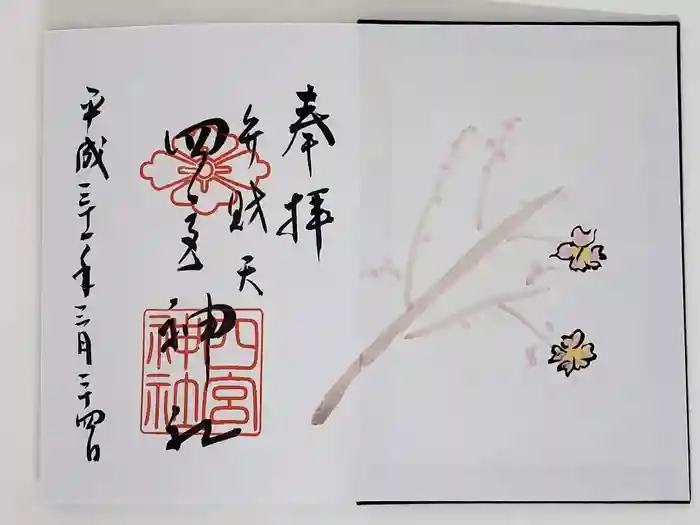 奉拝
弁財天
四之宮
神社
平成三十一年三月二十四日
四宮
神社